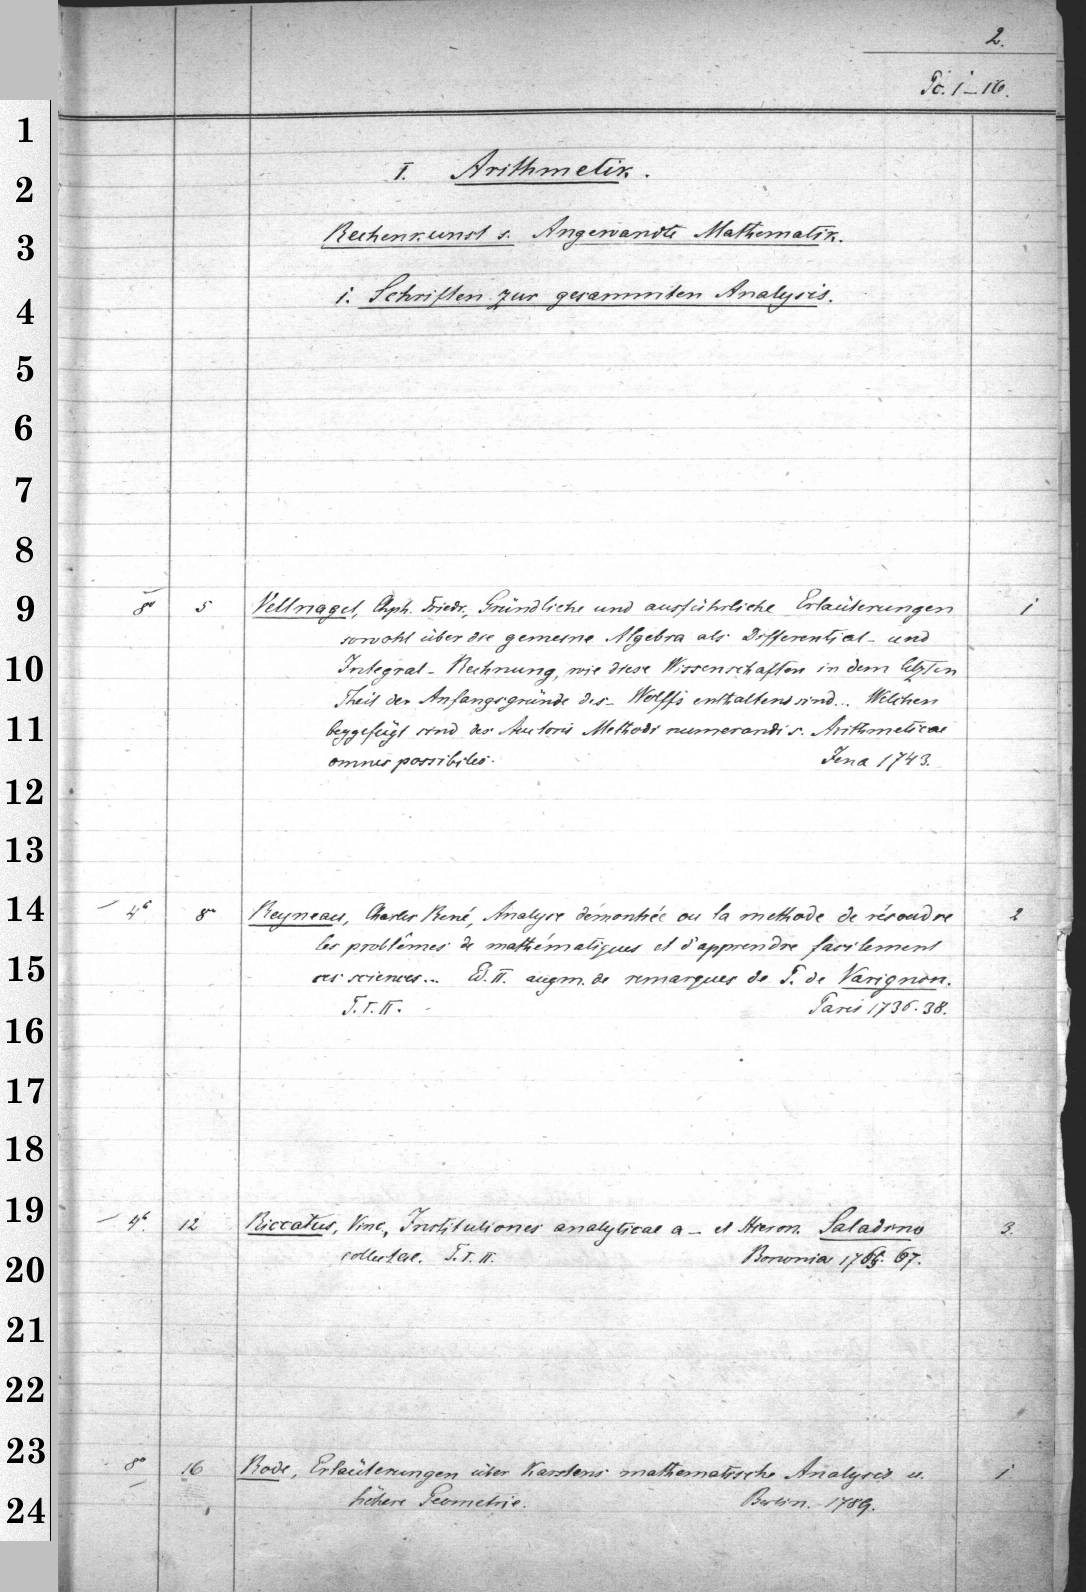 2.
Pc. 1–16.
I. Arithmetik.
Rechenkunst s. Angewandte Mathematik.
1. Schriften zur gesammten Analysis.
8° 5 Vellnagel, Chph. Friedr., Gründliche und ausführliche Erläuterungen 1
sowohl über die gemeine Algebra als Differential- und
Integral-Rechnung, wie diese Wissenschaften in dem letzten
Theil der Anfangsgründe des- Wolffs enthalten sind... Welchen
beygefügt sind des Autoris Methodi numerandi s. Arithmeticae
omnes possibiles. Jena 1743.
4° 8 Reyneau, Charles René, Analyse démontrée ou la methode de résoudre 2
les problêmes de mathématiques et d'apprendre facilement
ces sciences... Ed. II. augm. de remarques de P. de Varignon.
T. I. II. Paris 1736. 38.
4° 12 Riccatus, Vinc., Institutiones analyticae a – et Hieron. Saladino 3.
collectae. T. I. II. Bononia 1765. 67.
8° 16 Bode, Erläuterungen über Karstens mathematische Analysis u. 1
höhere Geometrie. Berlin. 1789.
1
2
3
4
5
6
7
8
9
10
11
12
13
14
15
16
17
18
19
20
21
22
23
24